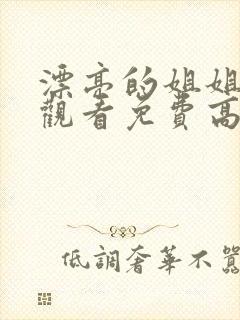 漂亮的姐姐
觀看免費高
低調奢華不囂